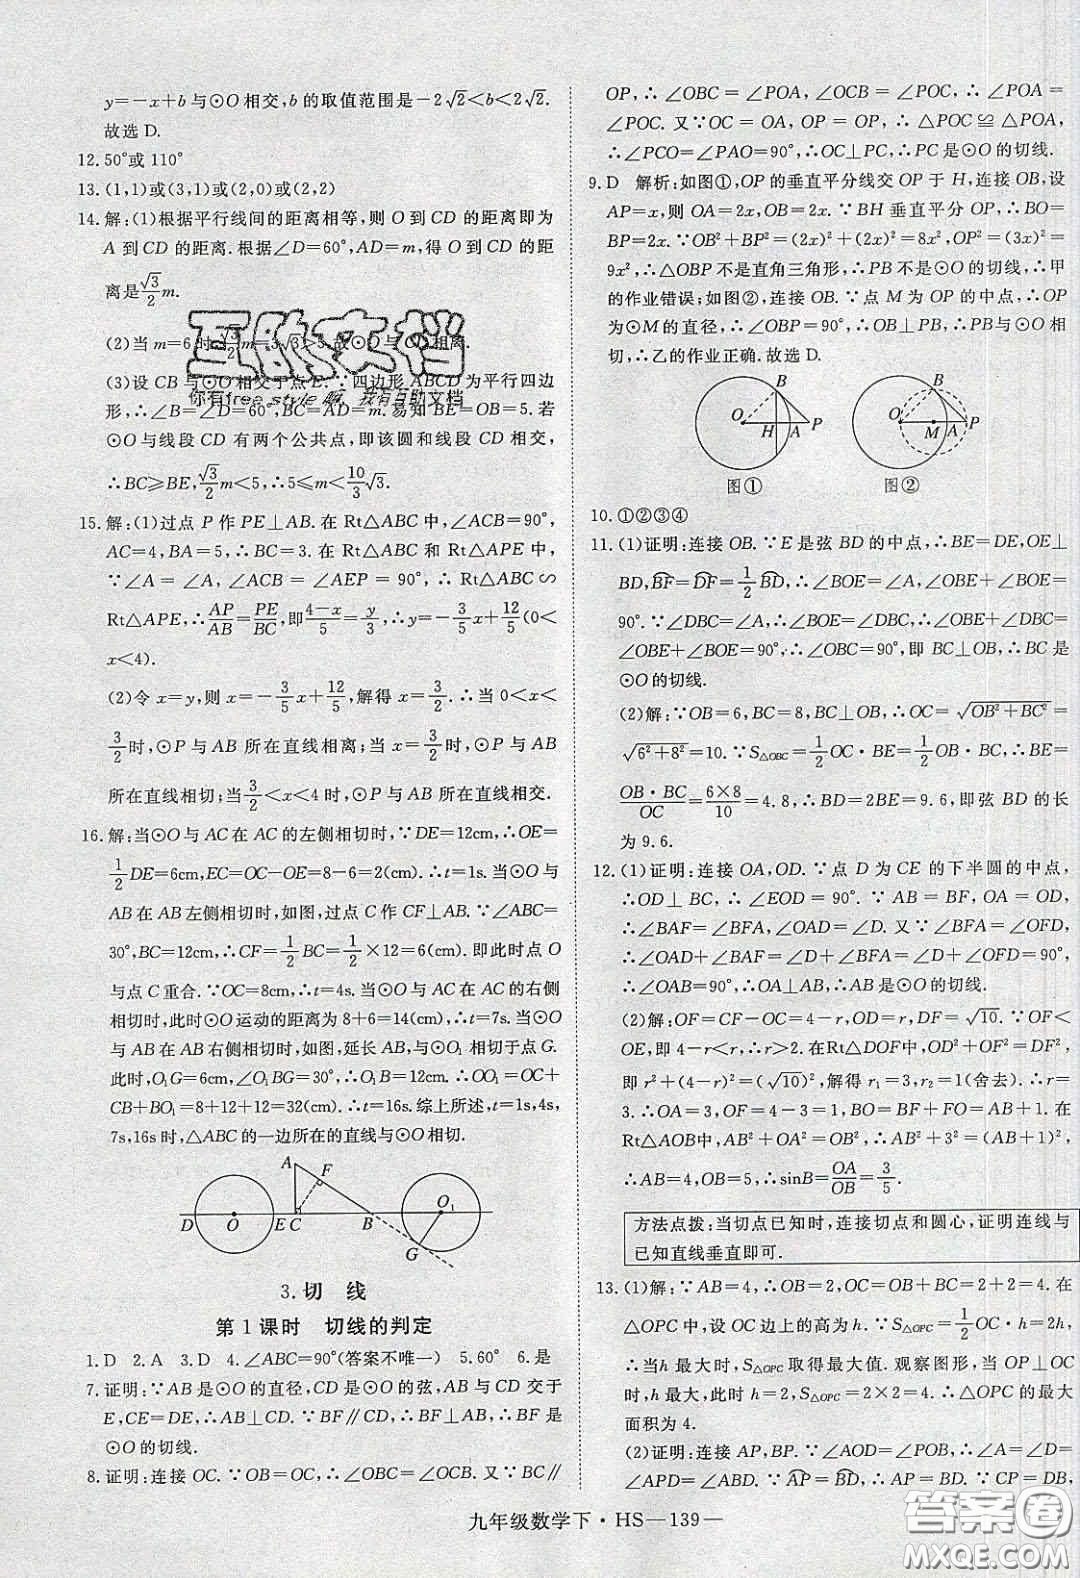 y=-x+b与⊙O相交,b的取值范围是-2√2<b<2√2.
故选D.
12.50°或110°
13.(1,1)或(3,1)或(2,0)或(2,2)
14.解:(1)根据平行线间的距离相等,则O到CD的距离即为
A到CD的距离.根据∠D=60°,AD=m,得O到CD的距
离是√3/2m.
(3)设CB与⊙O相交于点E.∵四边形ABCD为平行四边
你有free style嘛,我有互助文档
形,∴∠B=∠D=60°,BC=AD=m.易知OB=OE=5.若
⊙O与线段CD有两个公共点,即该圆和线段CD相交,
∴BC≥BE,√3/2m<5,∴5≤m<10/3√3.
15.解:(1)过点P作PE⊥AB.在Rt△ABC中,∠ACB=90°,
AC=4,BA=5,∴BC=3.在Rt△ABC和Rt△APE中,
∵∠A=∠A,∠ACB=∠AEP=90°,∴Rt△ABC∽
Rt△APE,∴AP/AB=PE/BC,即(4-x)/5=y/3,∴y=-3/5x+12/5(0<
x<4).
(2)令x=y,则x=-3/5x+12/5,解得x=3/2.∴当0<x<
3/2时,⊙P与AB所在直线相离;当x=3/2时,⊙P与AB
所在直线相切;当3/2<x<4时,⊙P与AB所在直线相交.
16.解:当⊙O与AC在AC的左侧相切时,∵DE=12cm,∴OE=
1/2DE=6cm,EC=OC-OE=8-6=2(cm),∴t=1s.当⊙O与
AB在AB左侧相切时,如图,过点C作CF⊥AB.∵∠ABC=
30°,BC=12cm,∴CF=1/2BC=1/2×12=6(cm).即此时点O
与点C重合.∵OC=8cm,∴t=4s.当⊙O与AC在AC的右侧
相切时,此时⊙O运动的距离为8+6=14(cm),∴t=7s.当⊙O
与AB在AB右侧相切时,如图,延长AB,与⊙O₁相切于点G.
此时,O₁G=6cm,∠O₁BG=30°,∴BO₁=12cm.∴OO₁=OC+
CB+BO₁=8+12+12=32(cm).∴t=16s.综上所述,t=1s,4s,
7s,16s时,△ABC的一边所在的直线与⊙O相切.
A F D O E C B O₁ G
3.切 线
第1课时 切线的判定
1.D 2.A 3.D 4.∠ABC=90°(答案不唯一) 5.60° 6.是
7.证明:∵AB是⊙O的直径,CD是⊙O的弦,AB与CD交于
E,CE=DE,∴AB⊥CD.∵BF∥CD,∴BF⊥AB,∴BF是
⊙O的切线.
8.证明:连接OC.∵OB=OC,∴∠OBC=∠OCB.又∵BC∥
OP,∴∠OBC=∠POA,∠OCB=∠POC,∴∠POA=
∠POC.又∵OC=OA,OP=OP,∴△POC≌△POA,
∴∠PCO=∠PAO=90°,∴OC⊥PC,∴PC是⊙O的切线.
9.D 解析:如图①,OP的垂直平分线交OP于H,连接OB,设
AP=x,则OA=2x,OB=2x.∵BH垂直平分OP,∴BO=
BP=2x.∵OB²+BP²=(2x)²+(2x)²=8x²,OP²=(3x)²=
9x²,∴△OBP不是直角三角形,∴PB不是⊙O的切线,∴甲
的作业错误;如图②,连接OB.∵点M为OP的中点,∴OP
为⊙M的直径,∴∠OBP=90°,∴OB⊥PB,∴PB与⊙O相
切,∴乙的作业正确.故选D.
B O H A P
B O M A P
图① 图②
10.①②③④
11.(1)证明:连接OB.∵E是弦BD的中点,∴BE=DE,OE⊥
BD,BF=DF=1/2BD,∴∠BOE=∠A,∠OBE+∠BOE=
90°.∵∠DBC=∠A,∴∠BOE=∠DBC,∴∠OBE+∠DBC=
∠OBE+∠BOE=90°,∴∠OBC=90°,即BC⊥OB,∴BC是
⊙O的切线.
(2)解:∵OB=6,BC=8,BC⊥OB,∴OC=√(OB²+BC²)
=√(6²+8²)=10.∵S△OBC=1/2OC·BE=1/2OB·BC,∴BE=
OB·BC/OC=6×8/10=4.8,∴BD=2BE=9.6,即弦BD的长
为9.6.
12.(1)证明:连接OA,OD.∵点D为CE的下半圆的中点,
∴OD⊥BC,∴∠EOD=90°.∵AB=BF,OA=OD,
∴∠BAF=∠BFA,∠OAD=∠D.又∵∠BFA=∠OFD,
∴∠OAD+∠BAF=∠D+∠BFA=∠D+∠OFD=90°,
∴∠OAB=90°,∴OA⊥AB,∴AB是⊙O的切线.
(2)解:OF=CF-OC=4-r,OD=r,DF=√10.∵OF<
OE,即4-r<r,∴r>2.在Rt△DOF中,OD²+OF²=DF²,
即r²+(4-r)²=(√10)²,解得r₁=3,r₂=1(舍去).∴r=
3.∴OA=3,OF=4-3=1,BO=BF+FO=AB+1.在
Rt△AOB中,AB²+OA²=OB²,∴AB²+3²=(AB+1)²,
∴AB=4,OB=5,∴sinB=OA/OB=3/5.
方法点拨:当切点已知时,连接切点和圆心,证明连线与
已知直线垂直即可.
13.(1)解:∵AB=4,∴OB=2,OC=OB+BC=2+2=4.在
△OPC中,设OC边上的高为h.∵S△OPC=1/2OC·h=2h,
∴当h最大时,S△OPC取得最大值.观察图形,当OP⊥OC
时,h最大,此时h=2,S△OPC=2×2=4.∴△OPC的最大
面积为4.
(2)证明:连接AP,BP.∵∠AOD=∠POB,∴∠A=∠D=
∠APD=∠ABD.∵AP=BD,∴AP=BD.∵CP=DB,
九年级数学下·HS—139—
答案圈
MXQE.COM